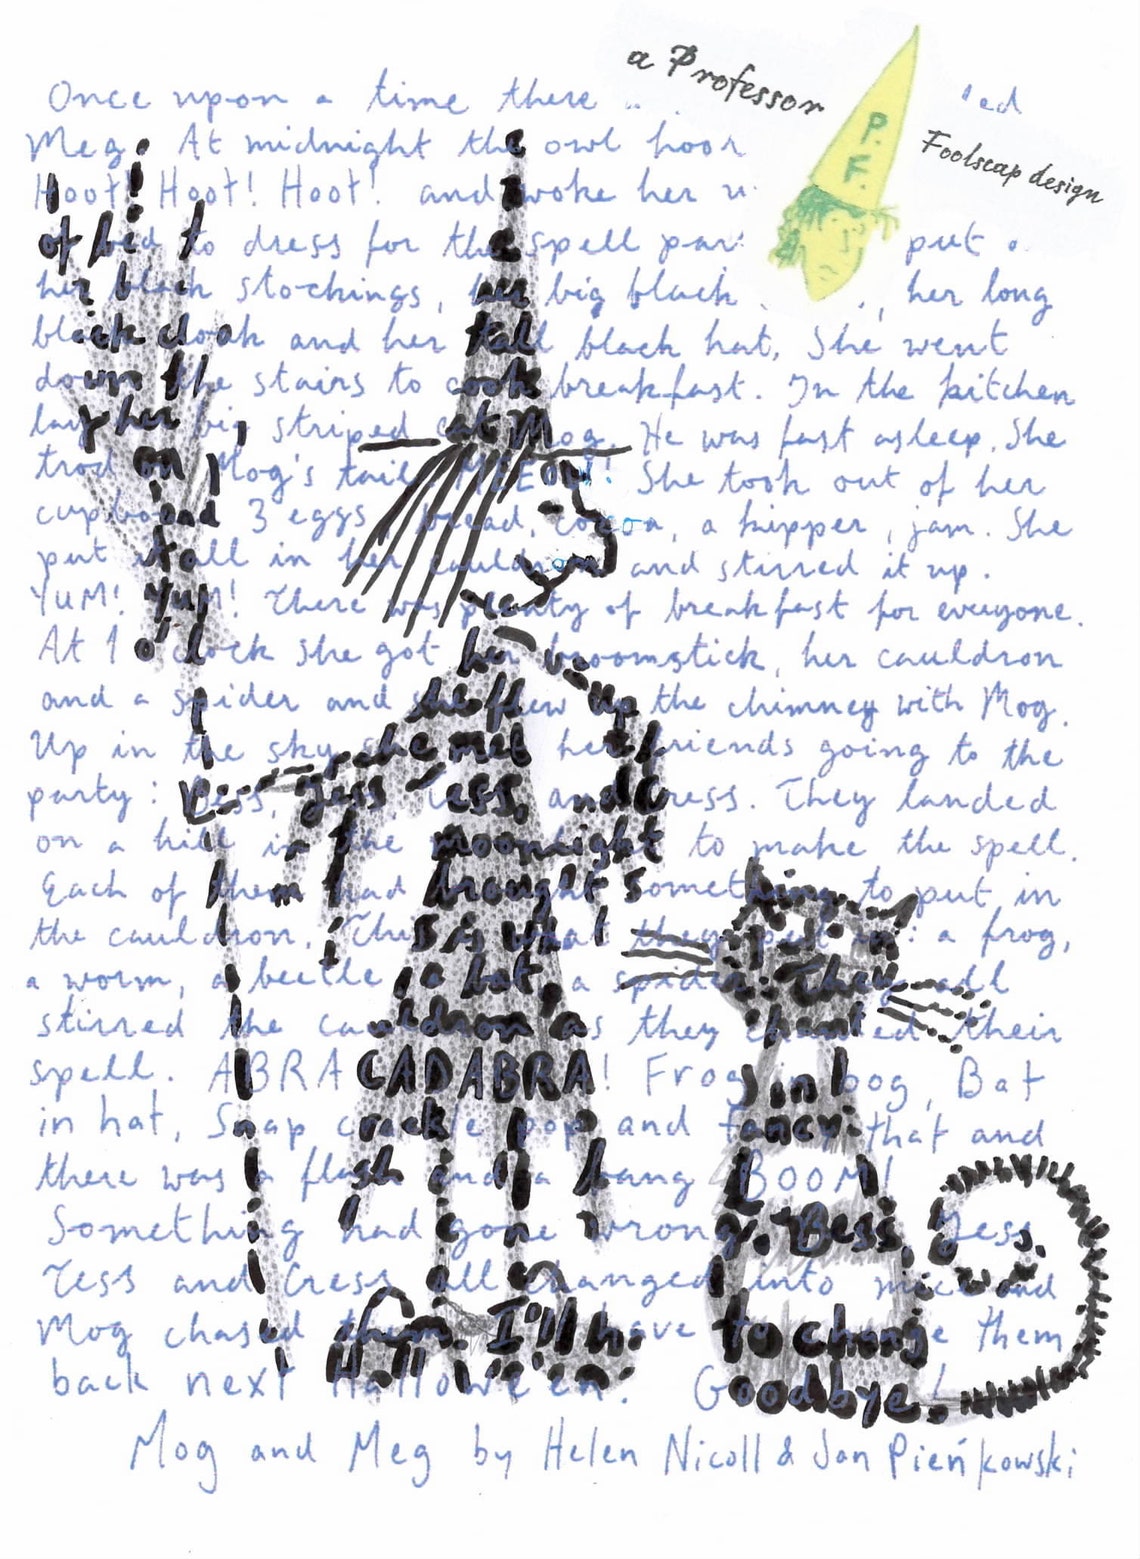 a Professor
P.
F.
Foolscap design
Once upon a time there
Meg. At midnight the owl hoo
Hoot! Hoot! Hoot! and woke her
of bed to dress for the spell par put
her black stockings, her big black , her long
black cloak and her tall black hat. She went
down the stairs to cook breakfast. In the kitchen
lay her big striped cat Mog. He was fast asleep. She
trod on Mog's tail MEEOW! She took out of her
cupboard 3 eggs, bread, cocoa, a kipper, jam. She
put it all in her cauldron and stirred it up.
YUM! YUM! There was plenty of breakfast for everyone.
At 1 o'clock she got her broomstick, her cauldron
and a spider and she flew up the chimney with Mog.
Up in the sky she met her friends going to the
party: Bess, Jess Tess, and Cress. They landed
on a hill in the moonlight to make the spell.
Each of them had brought something to put in
the cauldron. This is what they put in: a frog,
a worm, a beetle, a bat, a spider. They all
stirred the cauldron as they chanted their
spell. ABRA CADABRA! Frog in bog, Bat
in hat, Snap crackle pop and fancy that and
there was a flash and a bang BOOM!
Something had gone wrong. Bess, Jess,
Tess and Cress all changed into mice and
Mog chased them. I'll have to change them
back next Halloween. Goodbye!
Mog and Meg by Helen Nicoll & Jan Pieńkowski